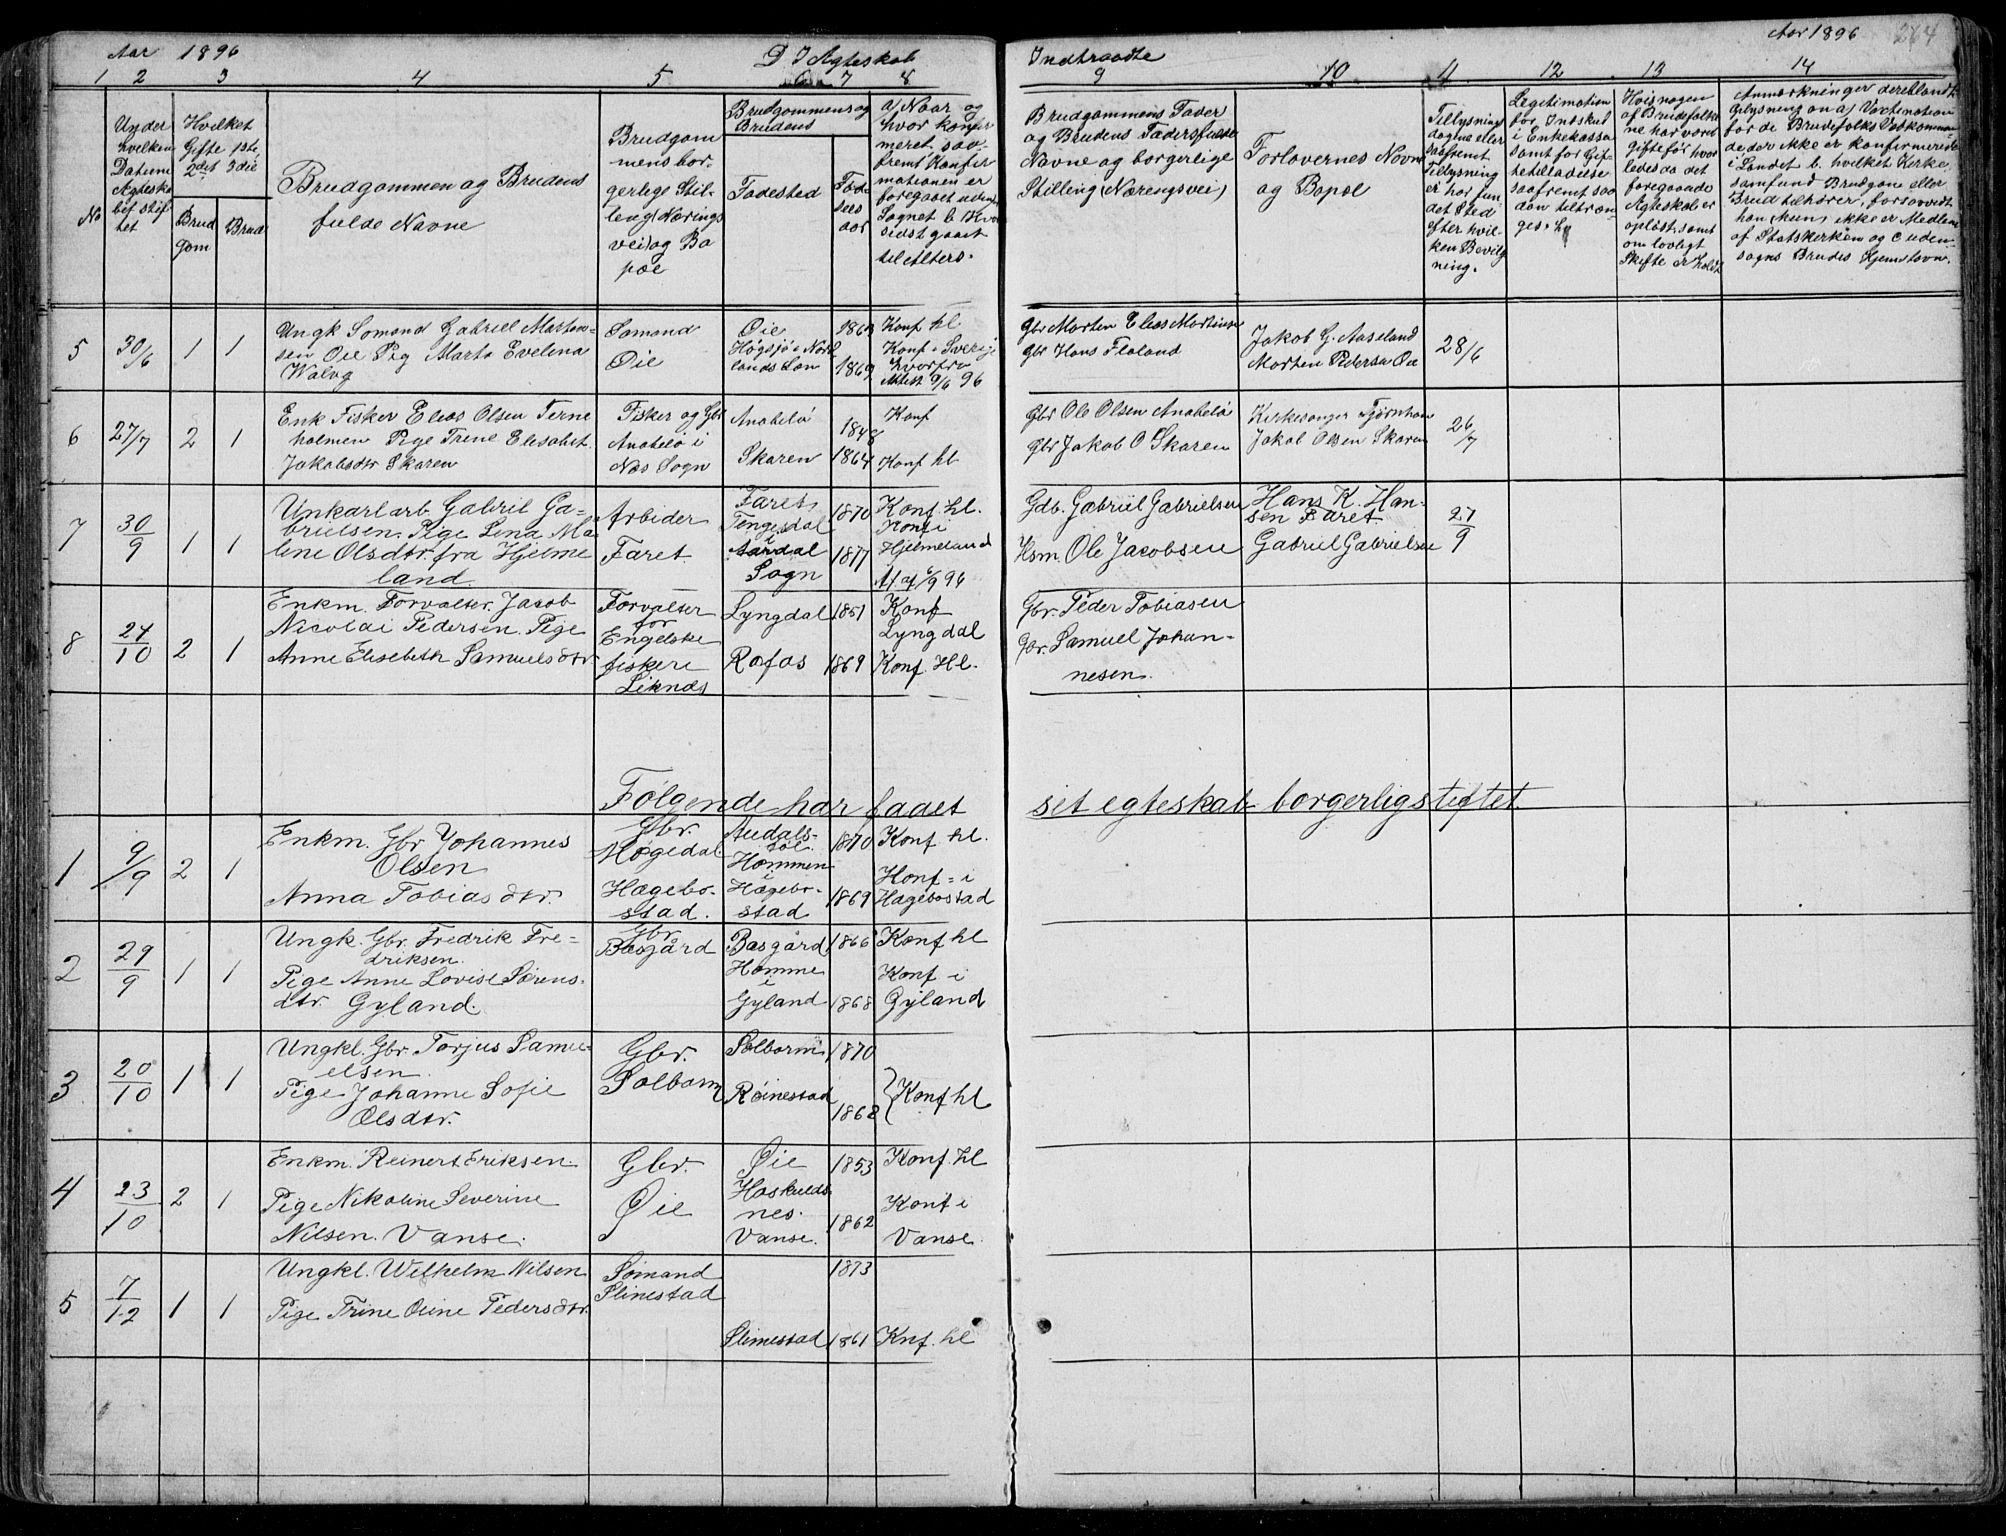 Aar 1896
D I Agteskab
Indtraadte
Aar 1896 264
1 2 3 4 5 6 7 8
9 10 11 12 13 14
No
Under
hvilken
Datum
Agteska
bet stif
tet
Hvilket
Gifte 1ste
2det 3die
Brud
gom
Brud
Brudgommen og Brudens
fulde Navne
Brudgom
mens bor
gerlege Stil-
leng (Nærings
vei) og Bo
pæl
Brudgommens og
Brudens
Fødested
Fød
sels
aar
a) Naar og
hvor konfir
meret, saa
fremt Konfir
mationen er
foregaaet udenf
Sognet b. Hvor
sidst gaaet
til Alters.
Brudgommens Fader
og Brudens Faders fulde
Navne og borgerlige
Stilling (Næringsvei)
Forlovernes Navne
og Bopæl
Tillysnings
dagne eller
saafremt
Tillysning
ei har fun
det Sted
efter hvil-
ken Bevilg
ning.
Legitimation
for Indskud
i Enkekassa
samt for Gif-
tetilladelse
saafremt saa
dan tiltræn
ges.
Hvis nogen
af Brudefolke
ne har været
gift før hvor
ledes da det
foregaaede
Agteskab er
opløst, samt
om lovligt
Skifte er holdt
Anmærkninger deriblandt
Oplysning om a) Vaxination
for de Brudefolks Vedkomman-
de der ikke er konfirmerede
i Landet b. hvilket Kirke
samfund Brudgom eller
Brud tilhører, forsaavidt
han (hun) ikke er Medlem
af Statskirken og c uden-
sogns Brudes Hjemstavn
5 30/6 1 1 Ungk Sømand Gabriel Marten-
sen Øie Pig Marta Evelina
Walvg
Sømand
Øie
Øie 1863 Konf hl
Høgsjø i Nord
lands Læn 1869 Konf i Sverige
hvorfra
Attest 9/6 96
Gbr Morten Elias Martinsen
Gbr Hans Floland
Jakob G. Aaseland
Morten Pedersen Øie
28/6
6 27/7 2 1 Enk Fisker Elias Olsen Terne
holmen Pige Trine Elisabet
Jakobsdtr Skaren
Fisker og Gbr
Anabelø i
Nes Sogn
Anabelø 1848 Konf
Skaren 1864 Konf hl
Gbr Ole Olsen Anabelø
Gbr Jakob O Skaren
Kirkesanger Tjørnhom
Jakob Olsen Skaren
26/7
7 30/9 1 1 Unkarl arb. Gabriel Ga-
brielsen. Pige Lena Ma
lene Olsdtr. fra Hjelme
land.
Arbider
Faret.
Faret 1870 Konf. hl.
Tengesdal
i
Aardal
Sogn 1877 Konf i
Hjelmeland
Gdb. Gabriil Gabrielsen
Hsm. Ole Jacobsen
Hans K. Han-
sen Faret
Gabriel Gabrielsen
27/9
8 24/10 2 1 Enkm. Forvalter. Jacob
Nicolai Pedersen. Pige
Anne Elisebeth Samuelsdtr.
Forvalter
for
Engelske
fiskeri
Liknes
Lyngdal 1851 Konf
Lyngdal
Rafos 1869 Konf. Hl.
Gbr. Peder Tobiasen
Gbr. Samuel Johan-
nesen.
Følgende har faaet sit egteskab borgerlig stiftet
1 9/9 2 1 Enkm. Gbr Johannes
Olsen
Anna Tobiasdtr.
Gbr.
Møgedal
Hægebo-
stad.
Audals-
1870 Konf hl.
Hommen
i
Hægebo-
stad 1869 Konf - i
Hægebostad
2 29/9 1 1 Ungk. Gbr. Fredrik Fre-
driksen.
Pige Anne Lovise Sørens-
dtr. Gyland.
Gbr.
Basgård
Basgård 1866 Konf hl
Homme
i
Gyland 1868 Konf - i
Gyland
3 20/10 1 1 Ungkl. Gbr Torjus Samu-
elsen.
Pige Johanne Sofie
Olsdtr.
Gbr.
Solborm
Solborm 1870
Røinestad 1862 Konf hl
4 23/10 2 1 Enkm. Reinert Eriksen
Pige Nikoline Severine
Nilsen. Vanse.
Gbr.
Øie
Øie 1853 Konf. hl
Haskulds
nes.
Vanse. 1862 Konf i
Vanse.
5 7/12 1 1 Ungkl. Wilhelm Nilsen
Pige Trine Oline Pedersdtr.
Sømand
Slimestad
1873
Slimestad 1861 Knf. hl